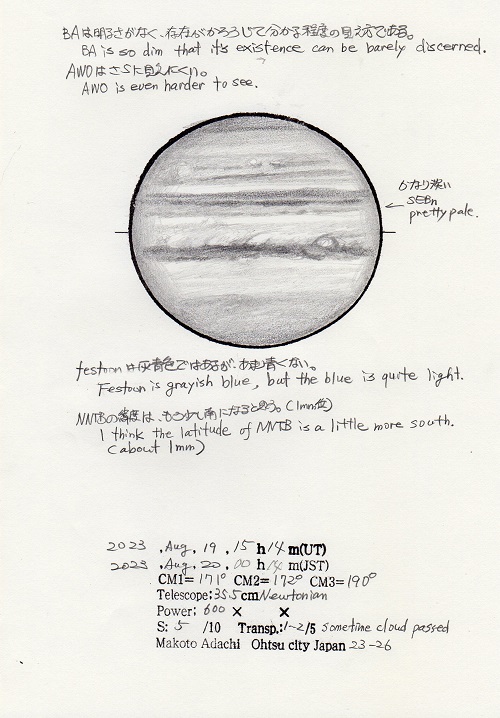 BAは明るさがなく、存在がかろうじて分かる程度の見え方である。
BA is so dim that its existence can be barely discerned.
AWOはさらに見えにくい。
AWO is even harder to see.
かなり淡い
SEBn
pretty pale.
festoonは灰青色ではあるが、あまり青くない。
Festoon is grayish blue, but the blue is quite light.
NNTBの緯度は、もう少し南になると思う。(1mm位)
I think the latitude of NNTB is a little more south.
(about 1mm)
2023 , Aug, 19 , 15 h 14 m(UT)
2023 , Aug, 20 , 00 h 14 m(JST)
CM1= 171° CM2= 172° CM3= 190°
Telescope: 35.5cm Newtonian
Power: 600 × ×
S: 5 /10 Transp.: 1-2/5 sometime cloud passed
Makoto Adachi Ohtsu city Japan 23-26